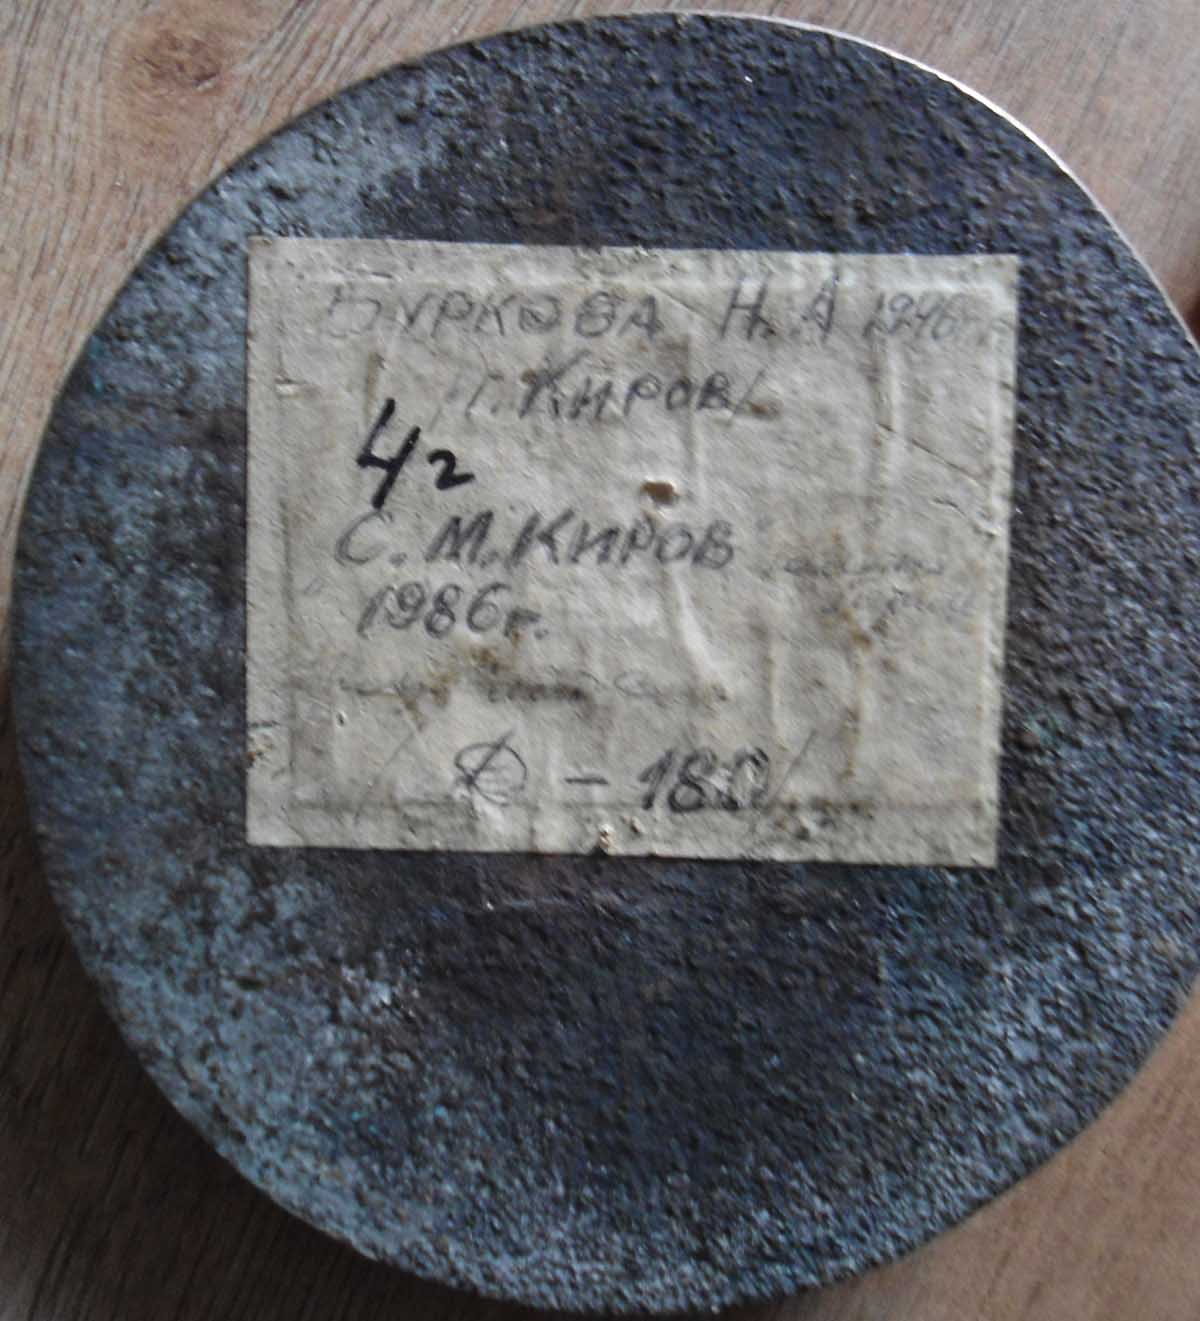 БУРКОВА Н. А 1946г.
г. Киров
4г
С. М. КИРОВ
1986г.
Ф - 180